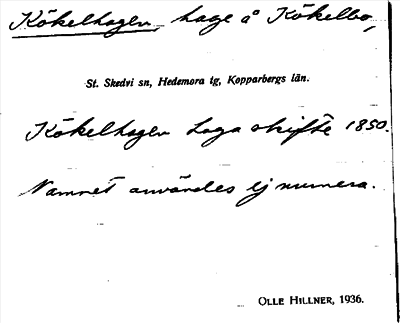 Kökelhagen, hage å Kökelbo,
St. Skedvi sn, Hedemora tg, Kopparbergs län.
Kökelhagen Laga skifte 1850.
Namnet användes ej numera.
OLLE HILLNER, 1936.